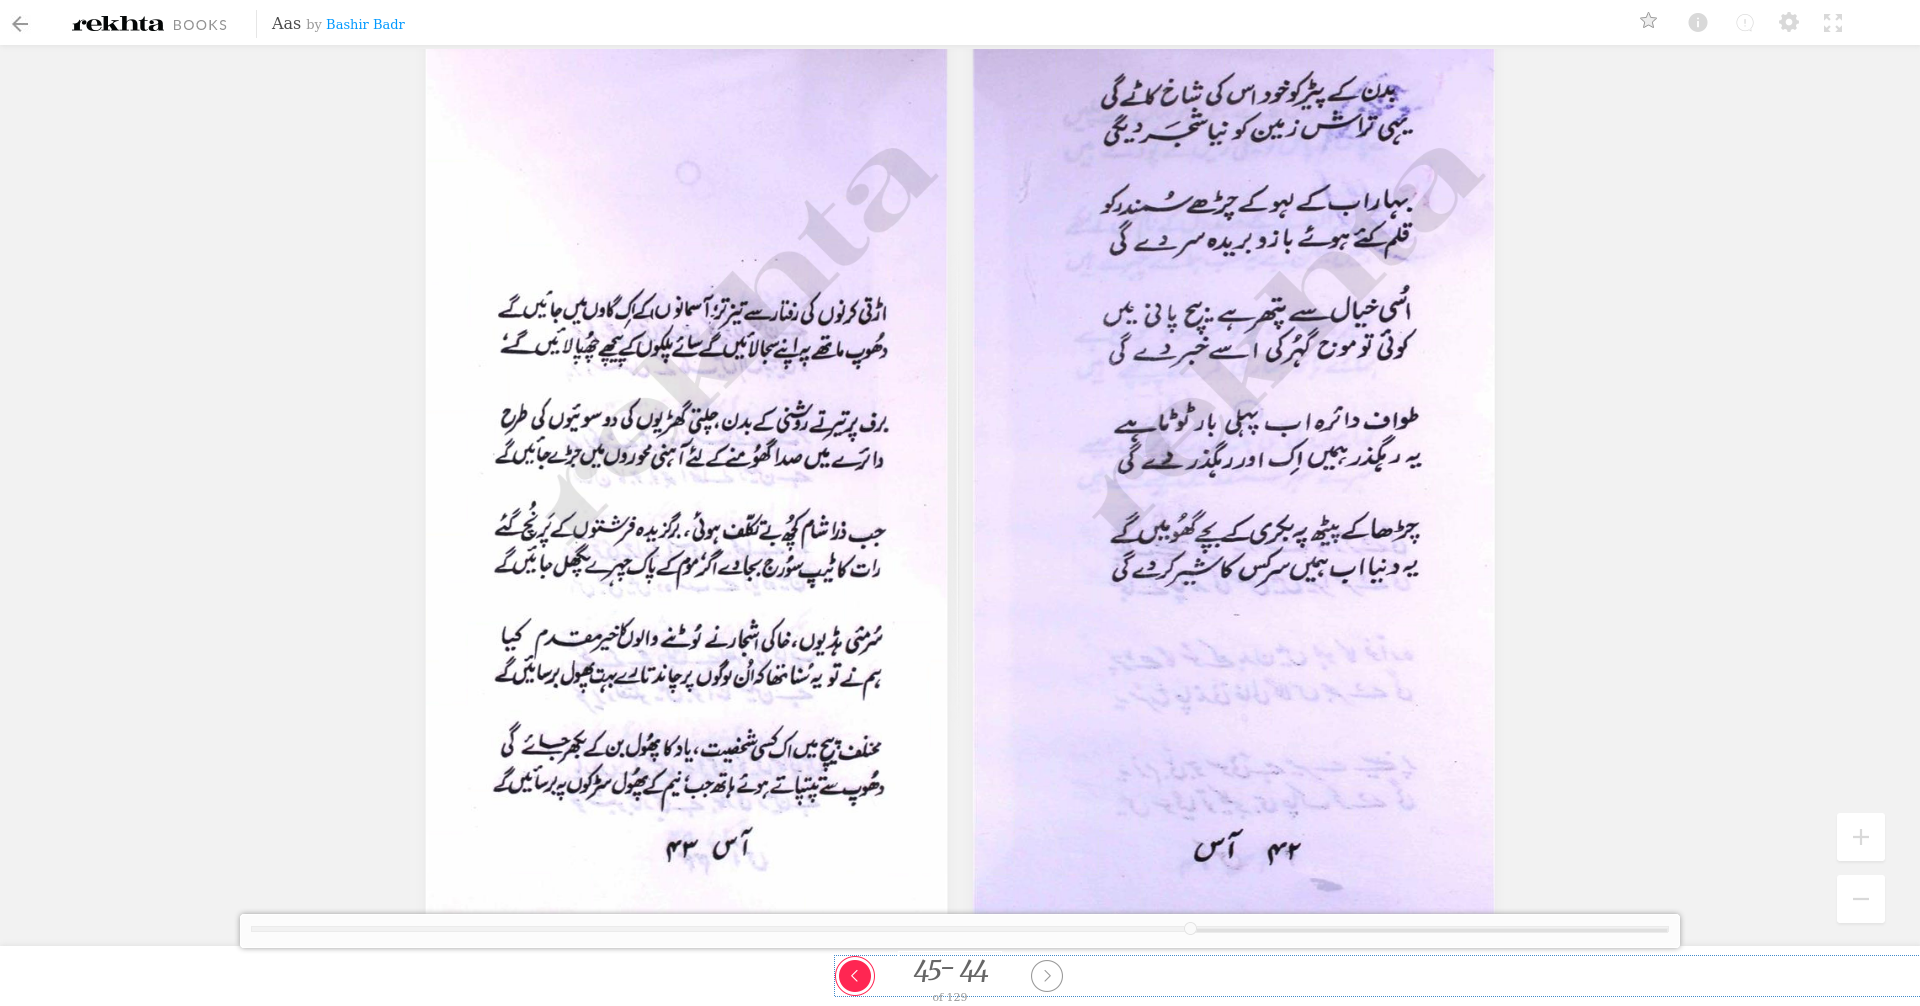 rekhta BOOKS Aas by Bashir Badr
بدن کے پیڑ کو خود اس کی شاخ کاٹے گی
یہی تراش زمین کو نیا شجر دیگی
بہار اب کے لہو کے چڑھے سمندر کو
قلم کئے ہوئے بازو بریدہ سر دے گی
اُسی خیال سے پتھر ہے بیچ پانی میں
کوئی تو موج گہر کی اسے خبر دے گی
طواف دائرہ اب پہلی بار ٹوٹا ہے
یہ رہگذر ہمیں اِک اور رہگذر دے گی
چڑھا کے پیٹھ پہ بکری کے بچے گھومیں گے
یہ دنیا اب ہمیں سرکس کا شیر کر دے گی
۴۲ آس
اڑتی کرنوں کی رفتار سے تیز تر، آسمانوں کے اِک گاوں میں جائیں گے
دھُوپ ماتھے پہ اپنے سجا لائیں گے سائے پلکوں کے پیچھے چھُپا لائیں گے
برف پر تیرتے روشنی کے بدن، چلتی گھڑیوں کی دو سوئیوں کی طرح
دائرے میں صدا گھومنے کے لئے آہنی محوروں میں جڑے جائیں گے
جب ذرا شام کچھ بے تکلّف ہوئی، برگزیدہ فرشتوں کے پَر نُچ گئے
رات کا ٹیپ سوُرج بجا دے اگر موم کے پاک چہرے پگھل جائیں گے
سُرمئی ہڈیوں، خاکی اشجار نے لوٹنے والوں کا خیر مقدم کیا
ہم نے تو یہ سُنا تھا کہ اُن لوگوں پر چاند تارے بہت پھول برسائیں گے
مختلف پیچ میں اک کسی شخصیت، یاد کا پھُول بن کے بکھر جائے گی
دھُوپ سے تپتپاتے ہوئے ہاتھ جب، نیم کے پھُول سڑکوں پہ برسائیں گے
آس ۴۳
rekhta
rekhta
45- 44
of 129